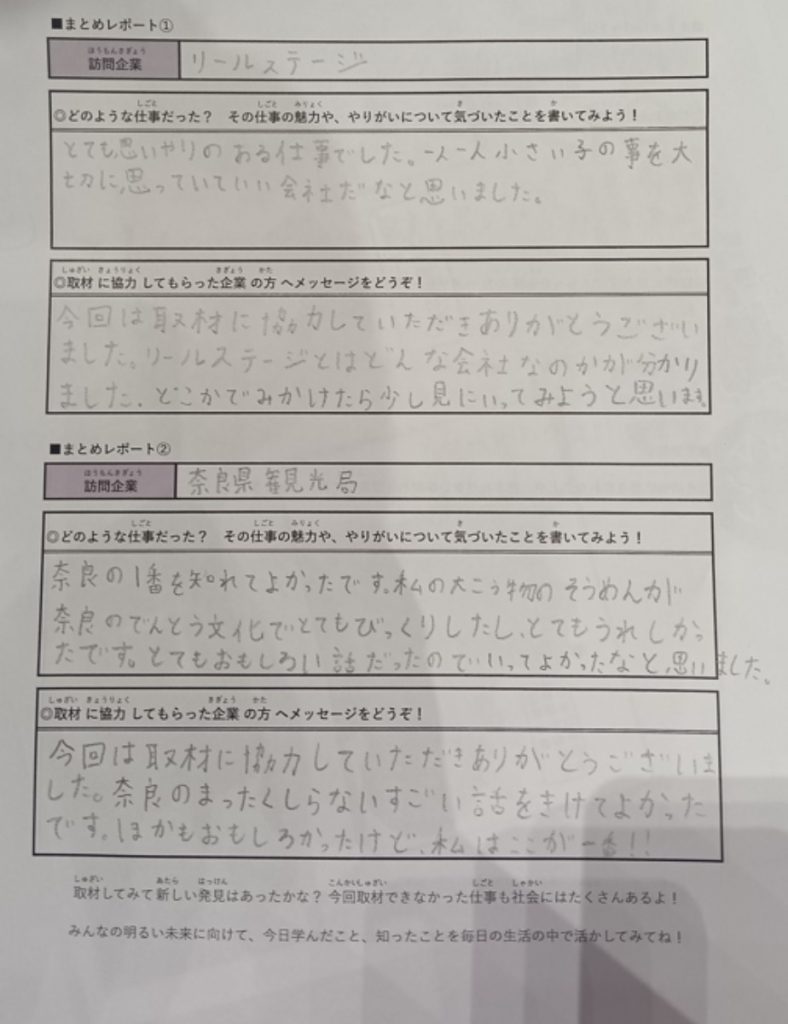 ■まとめレポート①
ほうもんきぎょう
訪問企業
リールステージ
しごと しごと みりょく き か
◎どのような仕事だった? その仕事の魅力や、やりがいについて気づいたことを書いてみよう!
とても思いやりのある仕事でした。一人一人小さい子の事を大
切に思っていていい会社だなと思いました。
しゅざい きょうりょく きぎょう かた
◎取材に協力してもらった企業の方へメッセージをどうぞ!
今回は取材に協力していただきありがとうござい
ました。リールステージとはどんな会社なのかが分かり
ました。どこかでみかけたら少し見にいってみようと思います。
■まとめレポート②
ほうもんきぎょう
訪問企業
奈良県観光局
しごと しごと みりょく き か
◎どのような仕事だった? その仕事の魅力や、やりがいについて気づいたことを書いてみよう!
奈良の1番を知れてよかったです。私の大こう物のそうめんが
奈良のでんとう文化でとてもびっくりしたし、とてもうれしかっ
たです。とてもおもしろい話だったのでいってよかったなと思いました。
しゅざい きょうりょく きぎょう かた
◎取材に協力してもらった企業の方へメッセージをどうぞ!
今回は取材に協力していただきありがとうございま
した。奈良のまったくしらないすごい話をきけてよかった
です。ほかもおもしろかったけど、私はここが一番!!
しゅざい あたら はっけん こんかいしゅざい しごと しゃかい
取材してみて新しい発見はあったかな?今回取材できなかった仕事も社会にはたくさんあるよ!
みんなの明るい未来に向けて、今日学んだこと、知ったことを毎日の生活の中で活かしてみてね!